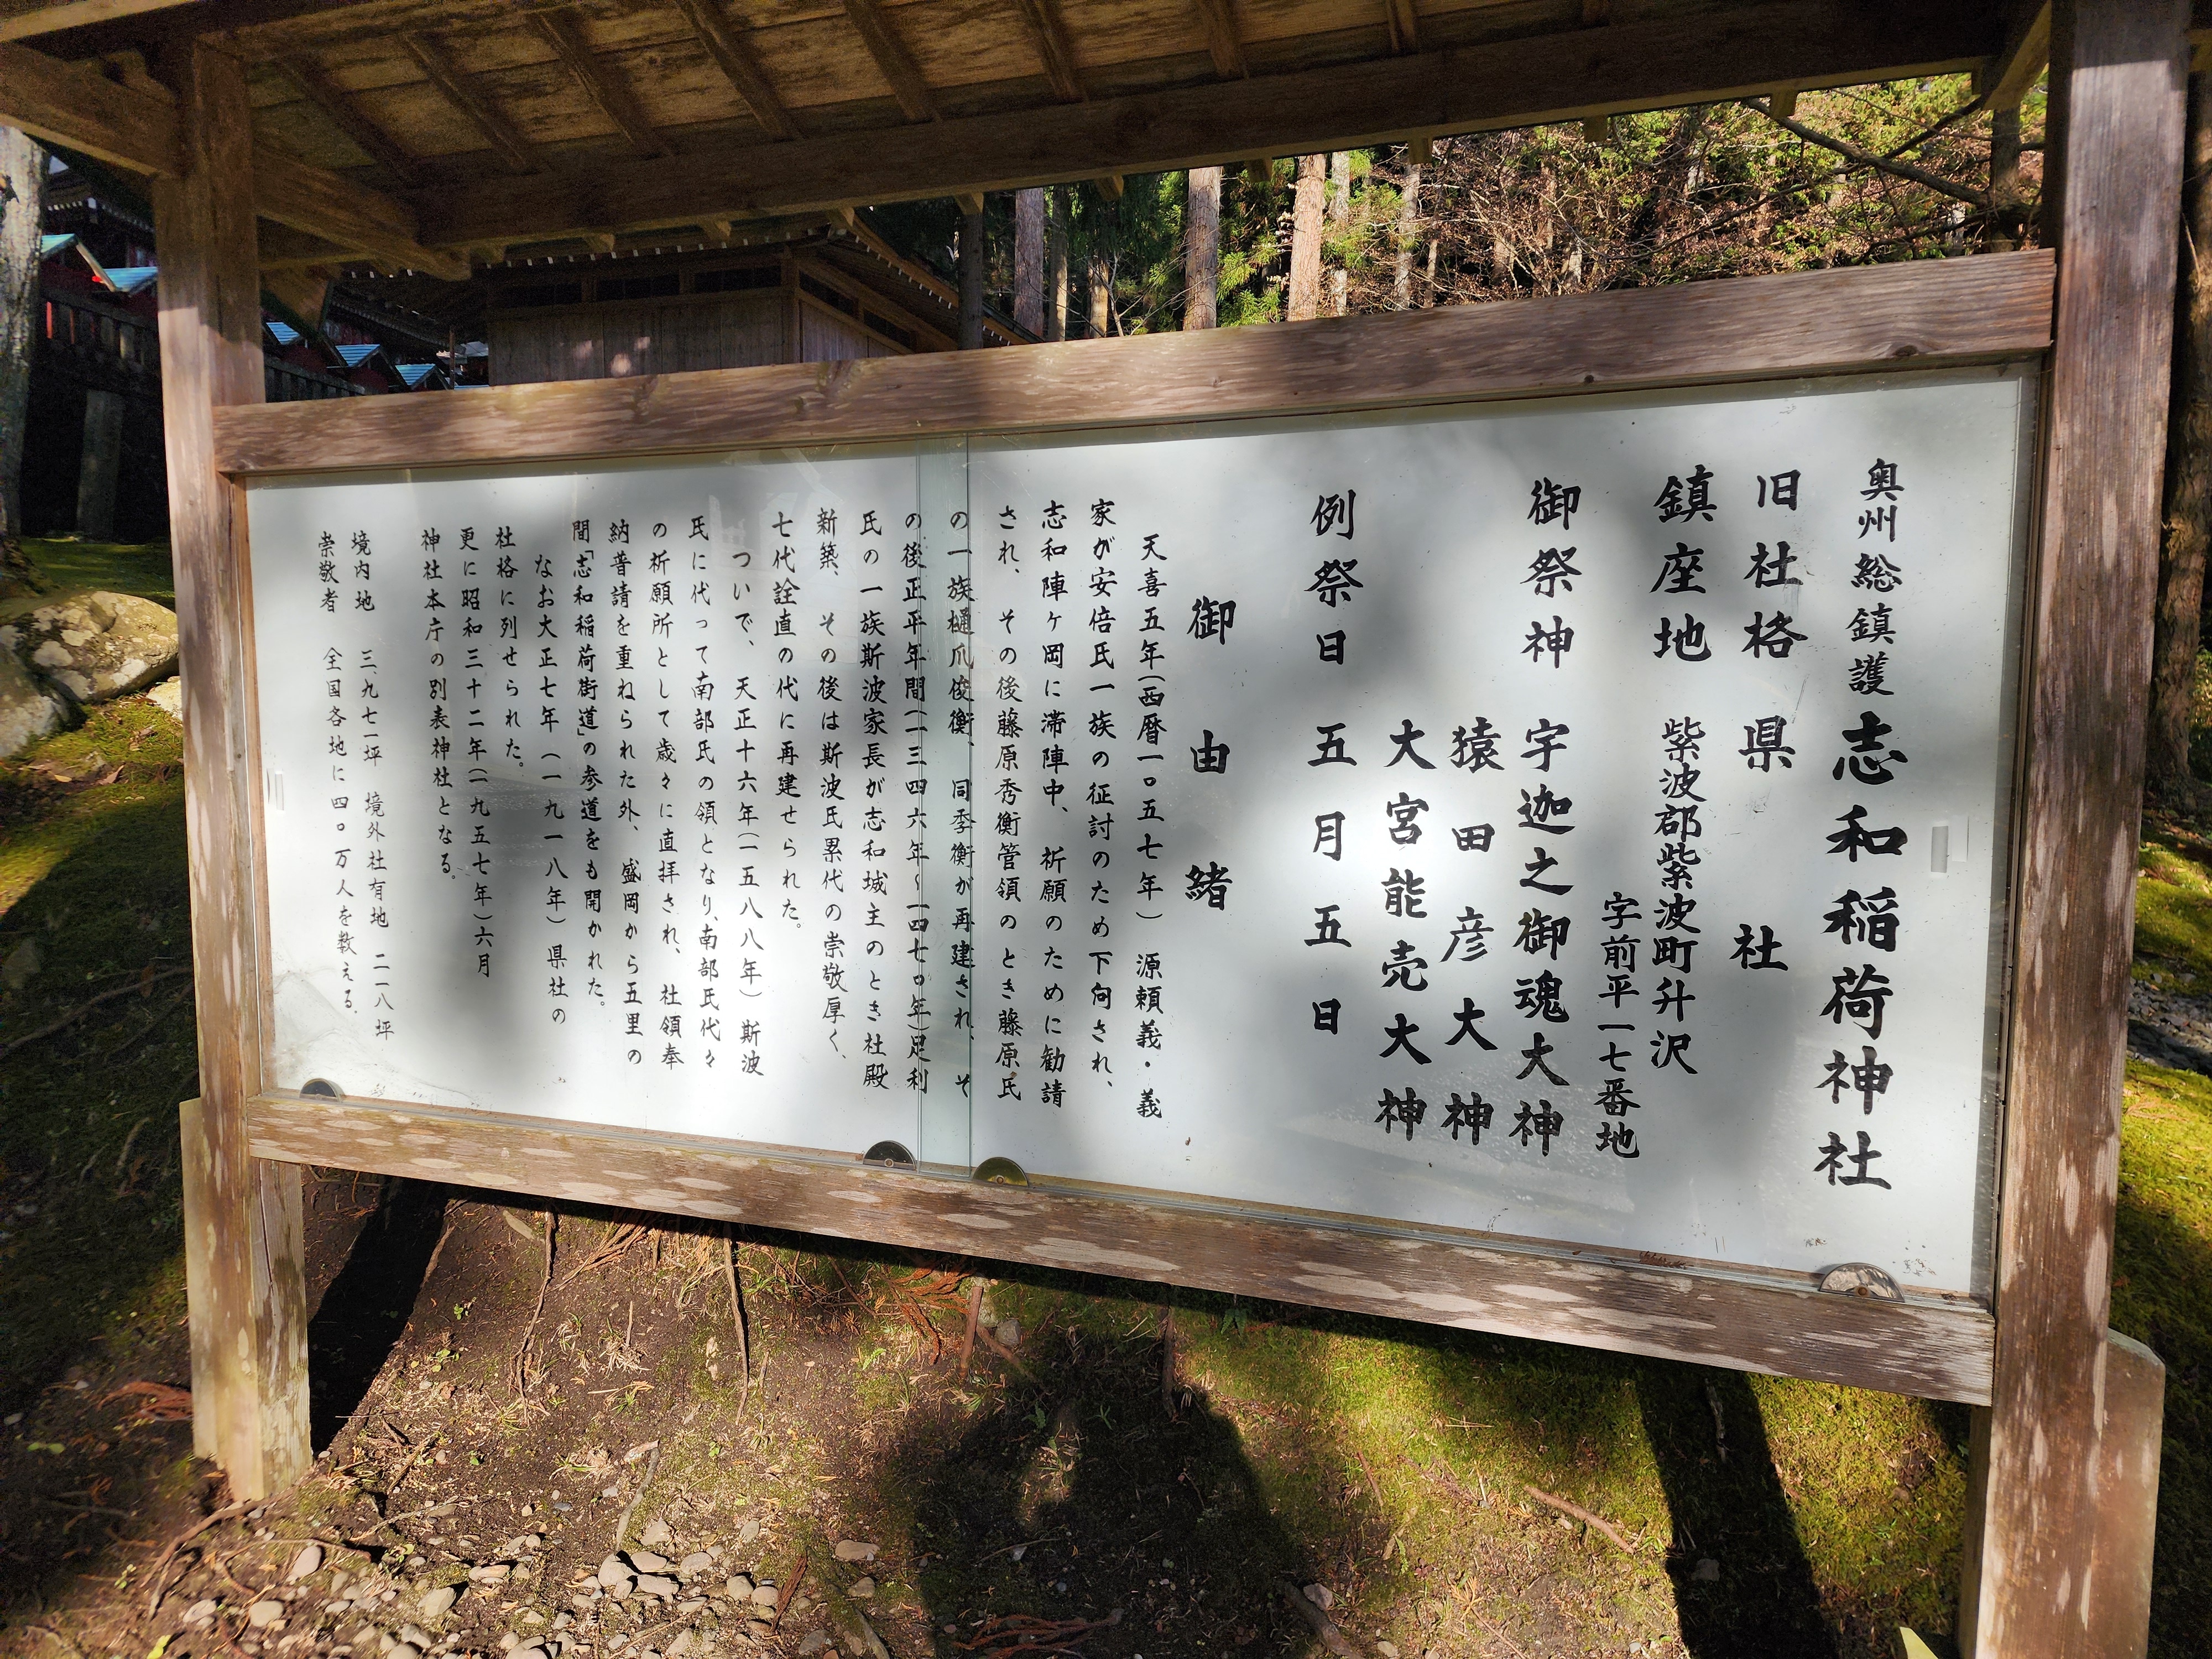 奥州総鎮護 志和稲荷神社
旧社格 県社
鎮座地 紫波郡紫波町升沢
字前平一七番地
御祭神 宇迦之御魂大神
猿田彦大神
大宮能売大神
例祭日 五月五日
御由緒
天喜五年(西暦一〇五七年)源頼義・義
家が安倍氏一族の征討のため下向され、
志和陣ヶ岡に滞陣中、祈願のために勧請
され、その後藤原秀衡管領のとき藤原氏
の一族樋爪俊衡、同季衡が再建され、そ
の後正平年間(一三四六年~一四七〇年)足利
氏の一族斯波家長が志和城主のとき社殿
新築、その後は斯波氏累代の崇敬厚く、
七代詮直の代に再建せられた。
ついで、天正十六年(一五八八年)斯波
氏に代って南部氏の領となり、南部氏代々
の祈願所として歳々に直拝され、社領奉
納普請を重ねられた外、盛岡から五里の
間「志和稲荷街道」の参道をも開かれた。
なお大正七年(一九一八年)県社の
社格に列せられた。
更に昭和三十二年(一九五七年)六月
神社本庁の別表神社となる。
境内地 三、九七一坪 境外社有地 二一八坪
崇敬者 全国各地に四〇万人を数える。